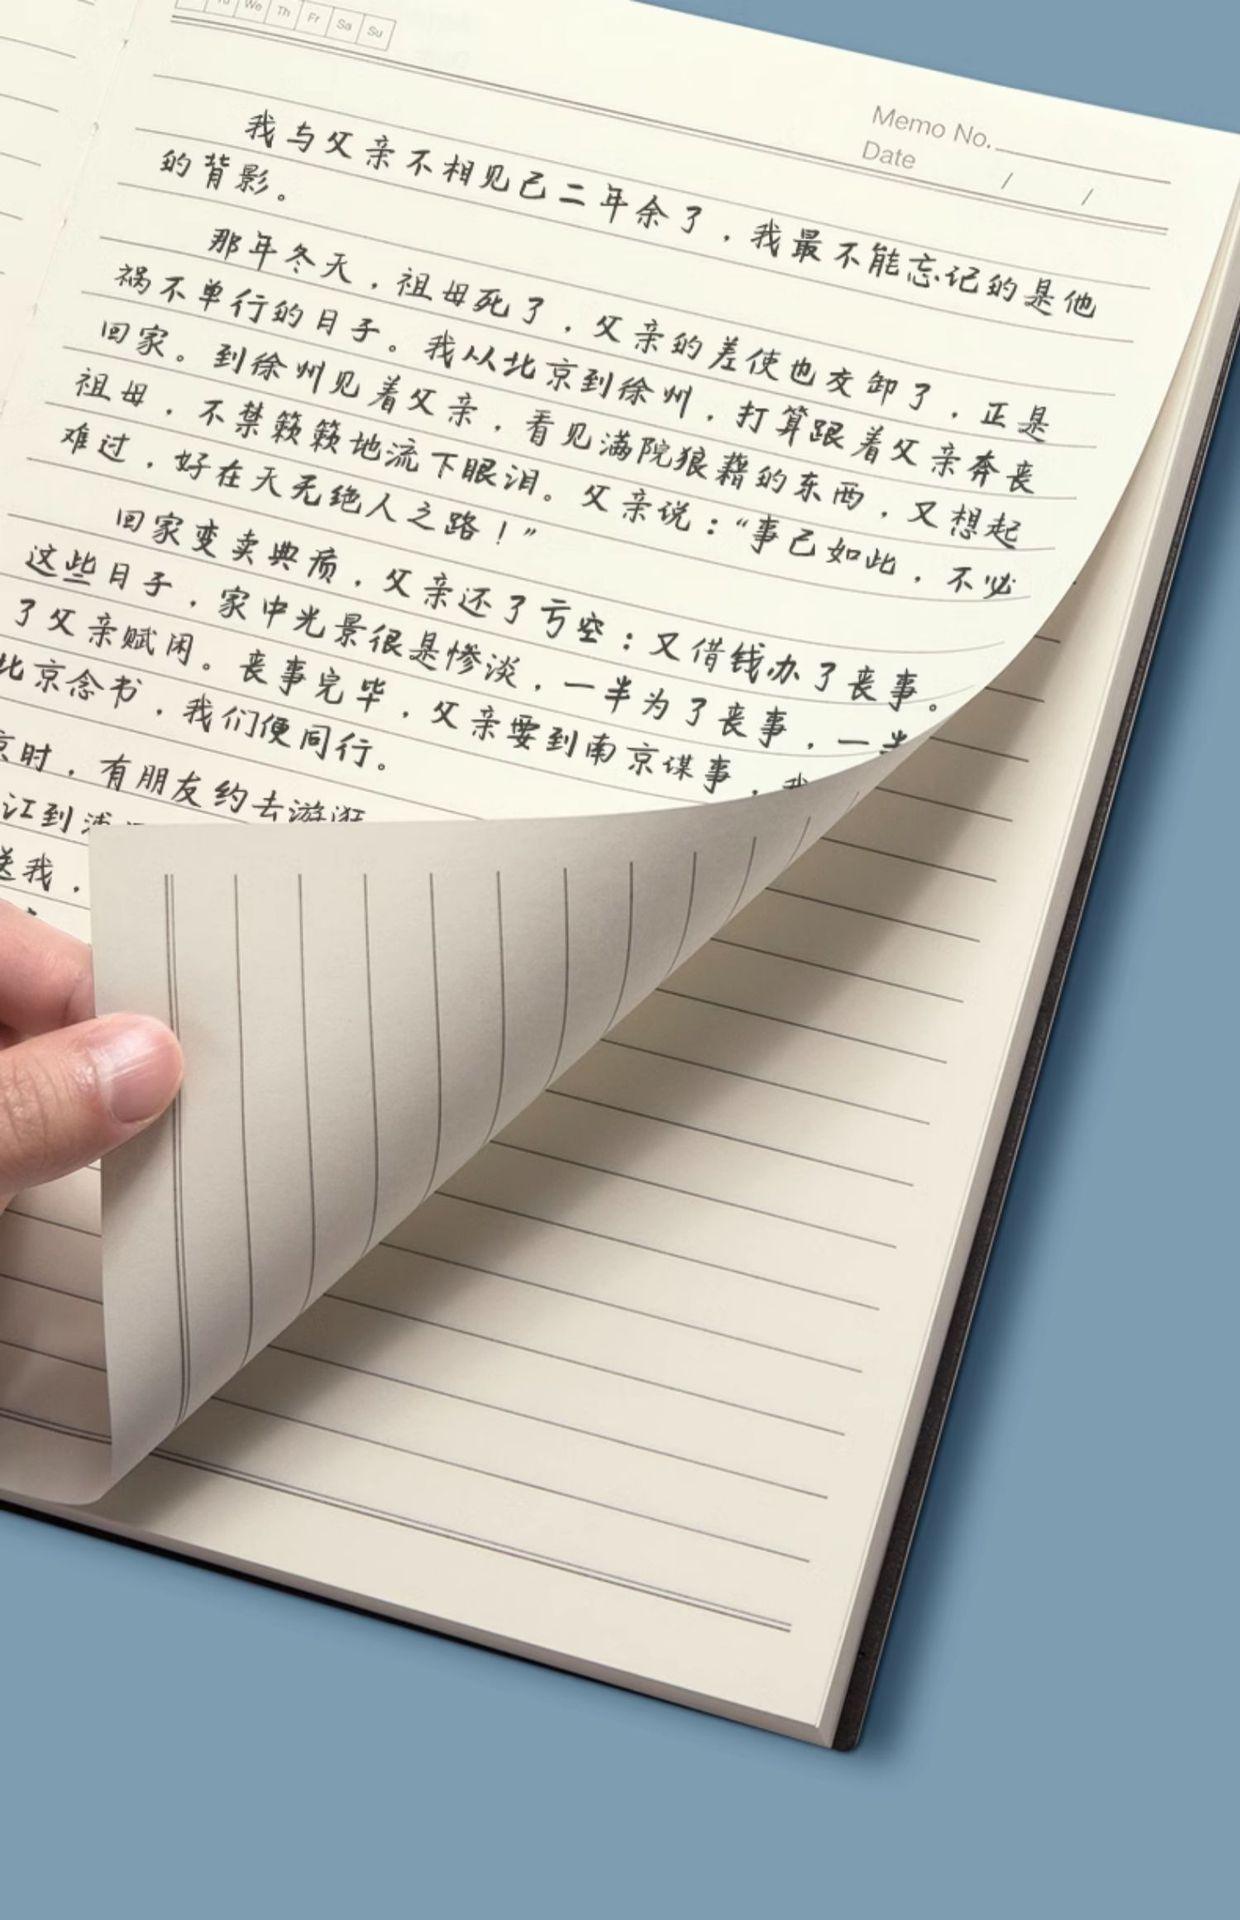 Tu We Th Fr Sa Su
Memo No.
Date / /
我与父亲不相见已二年余了，我最不能忘记的是他
的背影。
那年冬天，祖母死了，父亲的差使也交卸了，正是
祸不单行的日子。我从北京到徐州，打算跟着父亲奔丧
回家。到徐州见着父亲，看见满院狼藉的东西，又想起
祖母，不禁簌簌地流下眼泪。父亲说：“事已如此，不必
难过，好在天无绝人之路！”
回家变卖典质，父亲还了亏空；又借钱办了丧事。
这些日子，家中光景很是惨淡，一半为了丧事，一半
了父亲赋闲。丧事完毕，父亲要到南京谋事，我
北京念书，我们便同行。
京时，有朋友约去游逛
江到浦
送我，